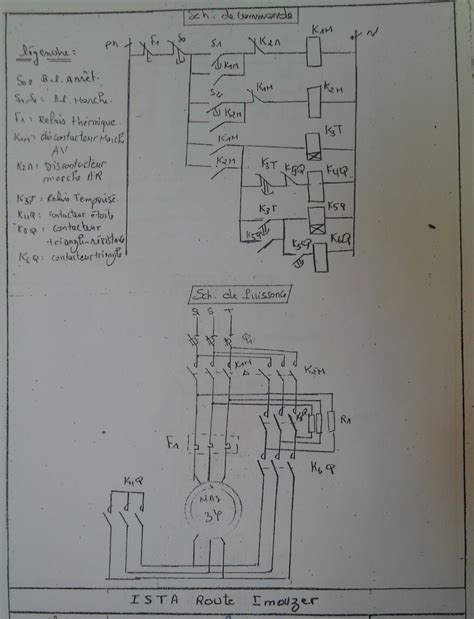 Sch. de Commande
légende:
S0: B.P. Arrêt.
F1: Relais thermique
AV
K2M: Discontacteur
marche AR
K3T: Relais Temporisé
K4Q: contacteur étoile
K5Q: contacteur
K6Q: contacteur triangle
ph
F1
S0
S1
K2M
K1M
N
K1M
S2
K1M
K2M
K2M
K1M
K3T
K2M
K3T
K5Q
K4Q
K3T
K5Q
K5Q
K5Q
K6Q
Sch. de Puissance
R
S
T
Q1
K1M
K2M
R1
F1
K4Q
K6Q
MAS
3φ
ISTA Route Imouzer